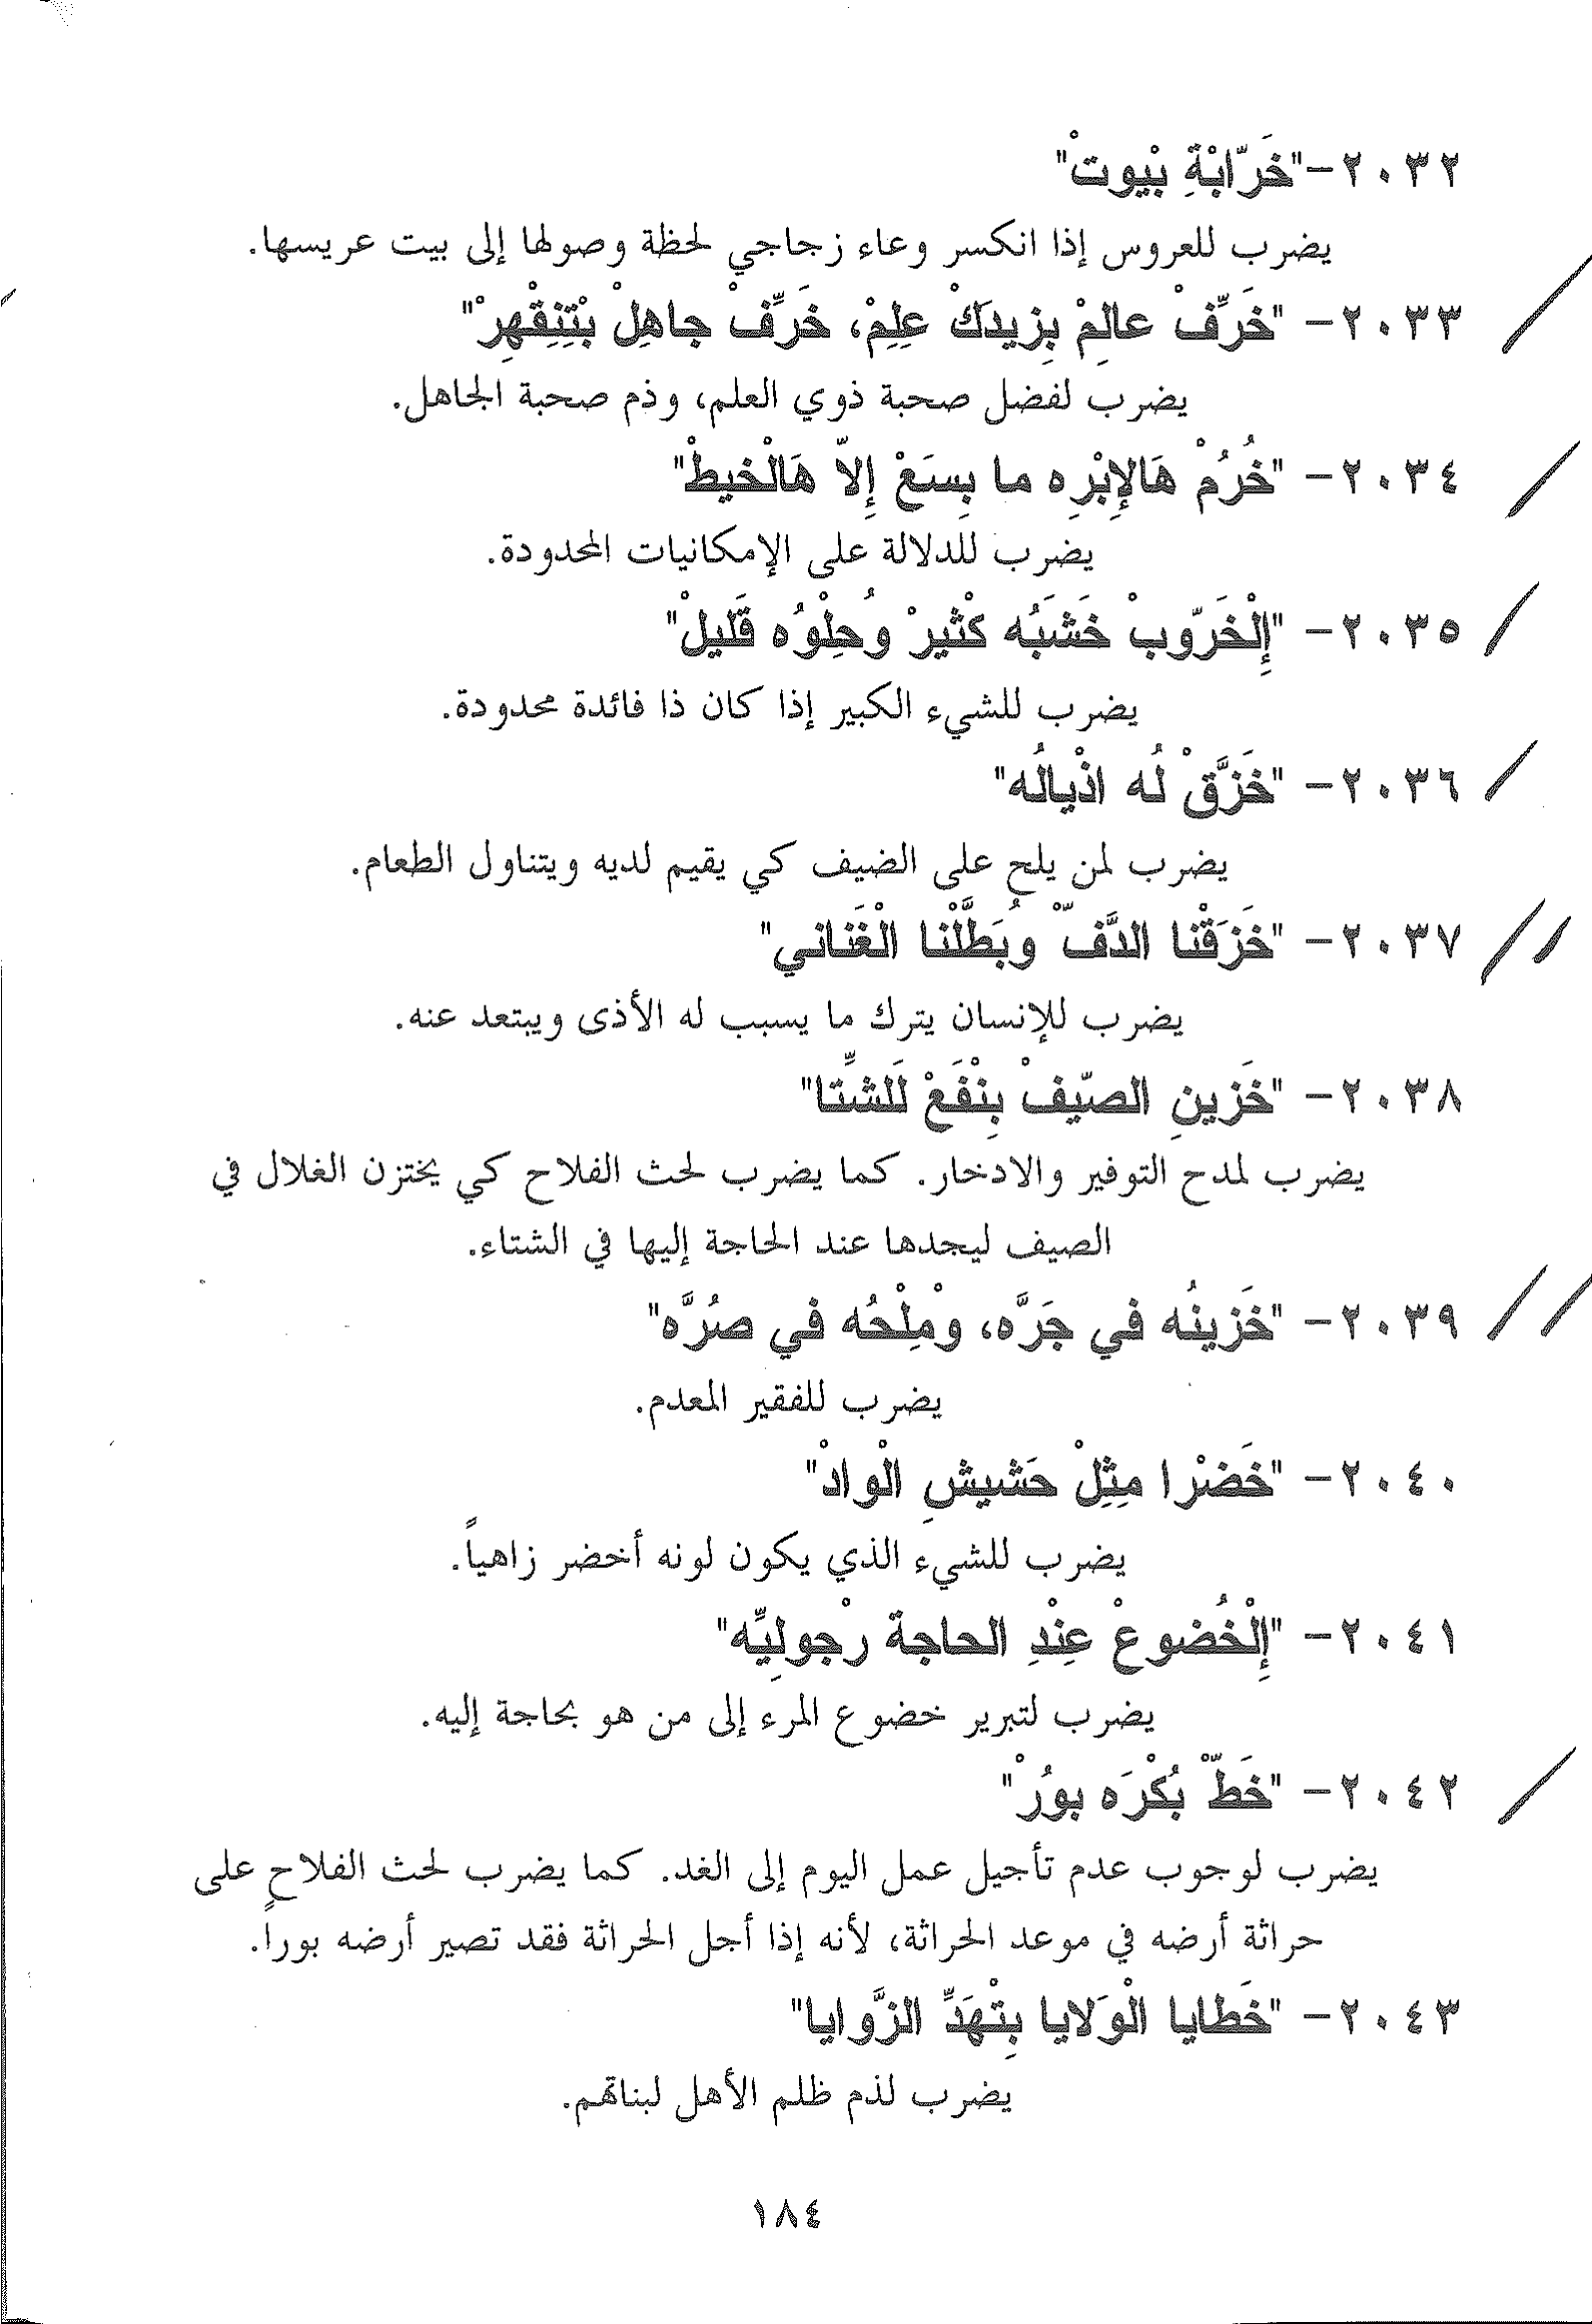 ٢٠٣٢- "خَرّابْةِ بْيوتْ"
يضرب للعروس إذا انكسر وعاء زجاجي لحظة وصولها إلى بيت عريسها.
٢٠٣٣- "خَرِّفْ عالِمْ بِزيدَكْ عِلِمْ، خَرِّفْ جاهِلْ بْتِنِقْهِرْ"
يضرب لفضل صحبة ذوي العلم، وذم صحبة الجاهل.
٢٠٣٤- "خُرُمْ هَالإِبْرِه ما بِسَعْ إِلاّ هَالْخيطْ"
يضرب للدلالة على الإمكانيات المحدودة.
٢٠٣٥- "إِلْخَرّوبْ خَشَبُه كْثيرْ وُحِلْوُه قَليلْ"
يضرب للشيء الكبير إذا كان ذا فائدة محدودة.
٢٠٣٦- "خَزَّقْ لُه اذْيالُه"
يضرب لمن يلح على الضيف كي يقيم لديه ويتناول الطعام.
٢٠٣٧- "خَزَقْنا الدَّفّْ وبَطَّلْنا الْغَناني"
يضرب للإنسان يترك ما يسبب له الأذى ويبتعد عنه.
٢٠٣٨- "خَزينِ الصّيفْ بِنْفَعْ لَلشِّتا"
يضرب لمدح التوفير والادخار. كما يضرب لحث الفلاح كي يختزن الغلال في
الصيف ليجدها عند الحاجة إليها في الشتاء.
٢٠٣٩- "خَزينُه في جَرَّه، وْمِلْحُه في صُرَّه"
يضرب للفقير المعدم.
٢٠٤٠- "خَضْرا مِثِلْ حَشيشِ الْوادْ"
يضرب للشيء الذي يكون لونه أخضر زاهياً.
٢٠٤١- "إِلْخُضوعْ عِنْدِ الحاجة رْجولِيِّه"
يضرب لتبرير خضوع المرء إلى من هو بحاجة إليه.
٢٠٤٢- "خَطّْ بُكْرَه بورْ"
يضرب لوجوب عدم تأجيل عمل اليوم إلى الغد. كما يضرب لحث الفلاح على
حراثة أرضه في موعد الحراثة، لأنه إذا أجل الحراثة فقد تصير أرضه بوراً.
٢٠٤٣- "خَطايا الْوَلايا بِتْهَدِّ الزَّوايا"
يضرب لذم ظلم الأهل لبناتهم.
١٨٤